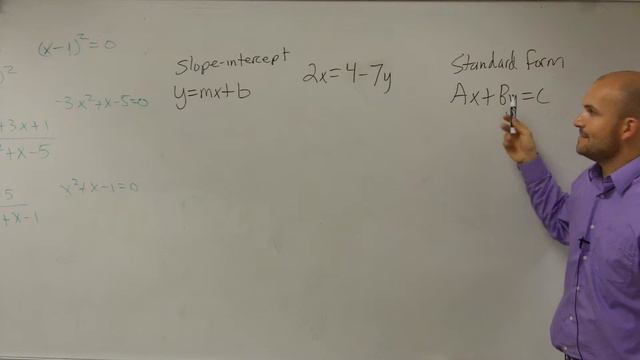 (x-1)²=0
)²
-3x²+x-5=0
+3x+1
²+x-5
x²+x-1=0
5
+x-1
Slope-intercept
y=mx+b
2x=4-7y
Standard form
Ax+By=C